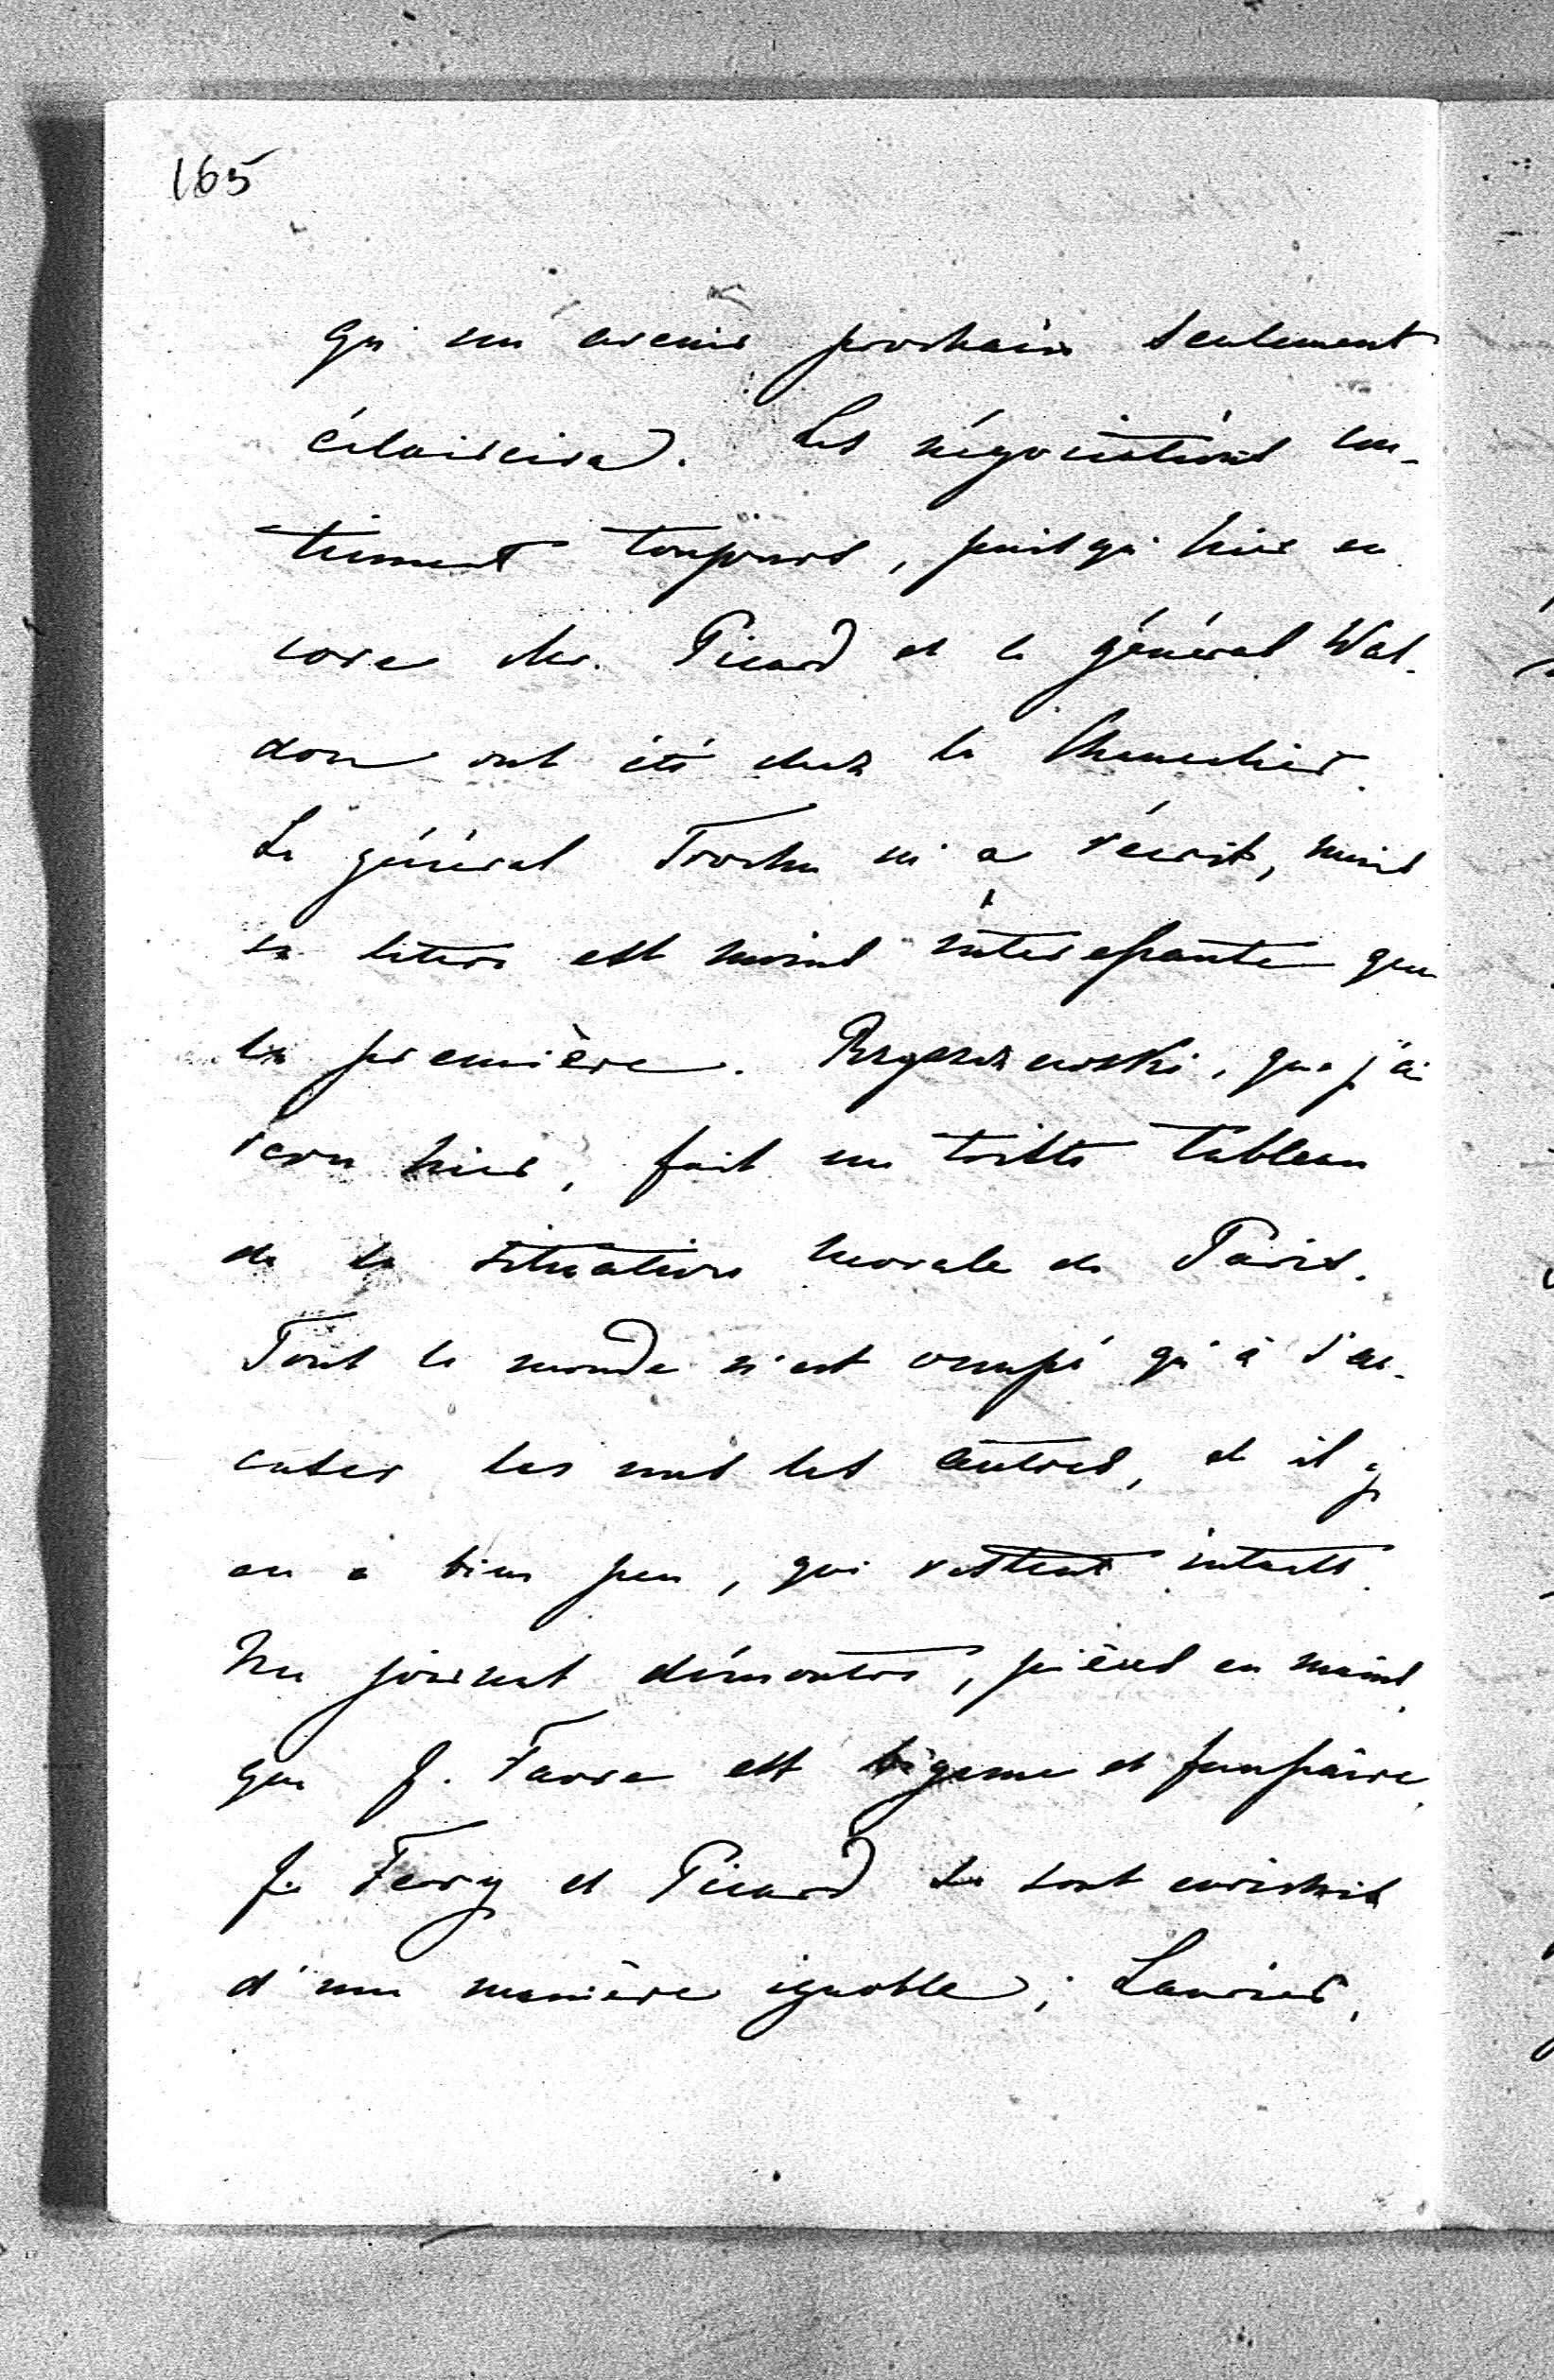 165
qu'un avenir prochain seulement
éclaircira. Les négociations con-
tinuent toujours, puisqu'hier en
core Mr. Picard et le général Val-
dan ont été chez le Chancelier.
Le général Trochu m'a récrit, mais
sa lettre est moins intéressante que
la première. que j'ai
reçu hier, fait un triste tableau
de la situation morale de Paris.
Tout le monde n'est occupé qu'à s'ac-
cuser les uns les autres, et il y
en a bien peu, qui restent intacts.
Un journal démontre, pièces en mains,
que J. Favre est bigame et faussaire,
J. Ferry et Picard se sont enrichis
d'une manière ignoble; Laurier,